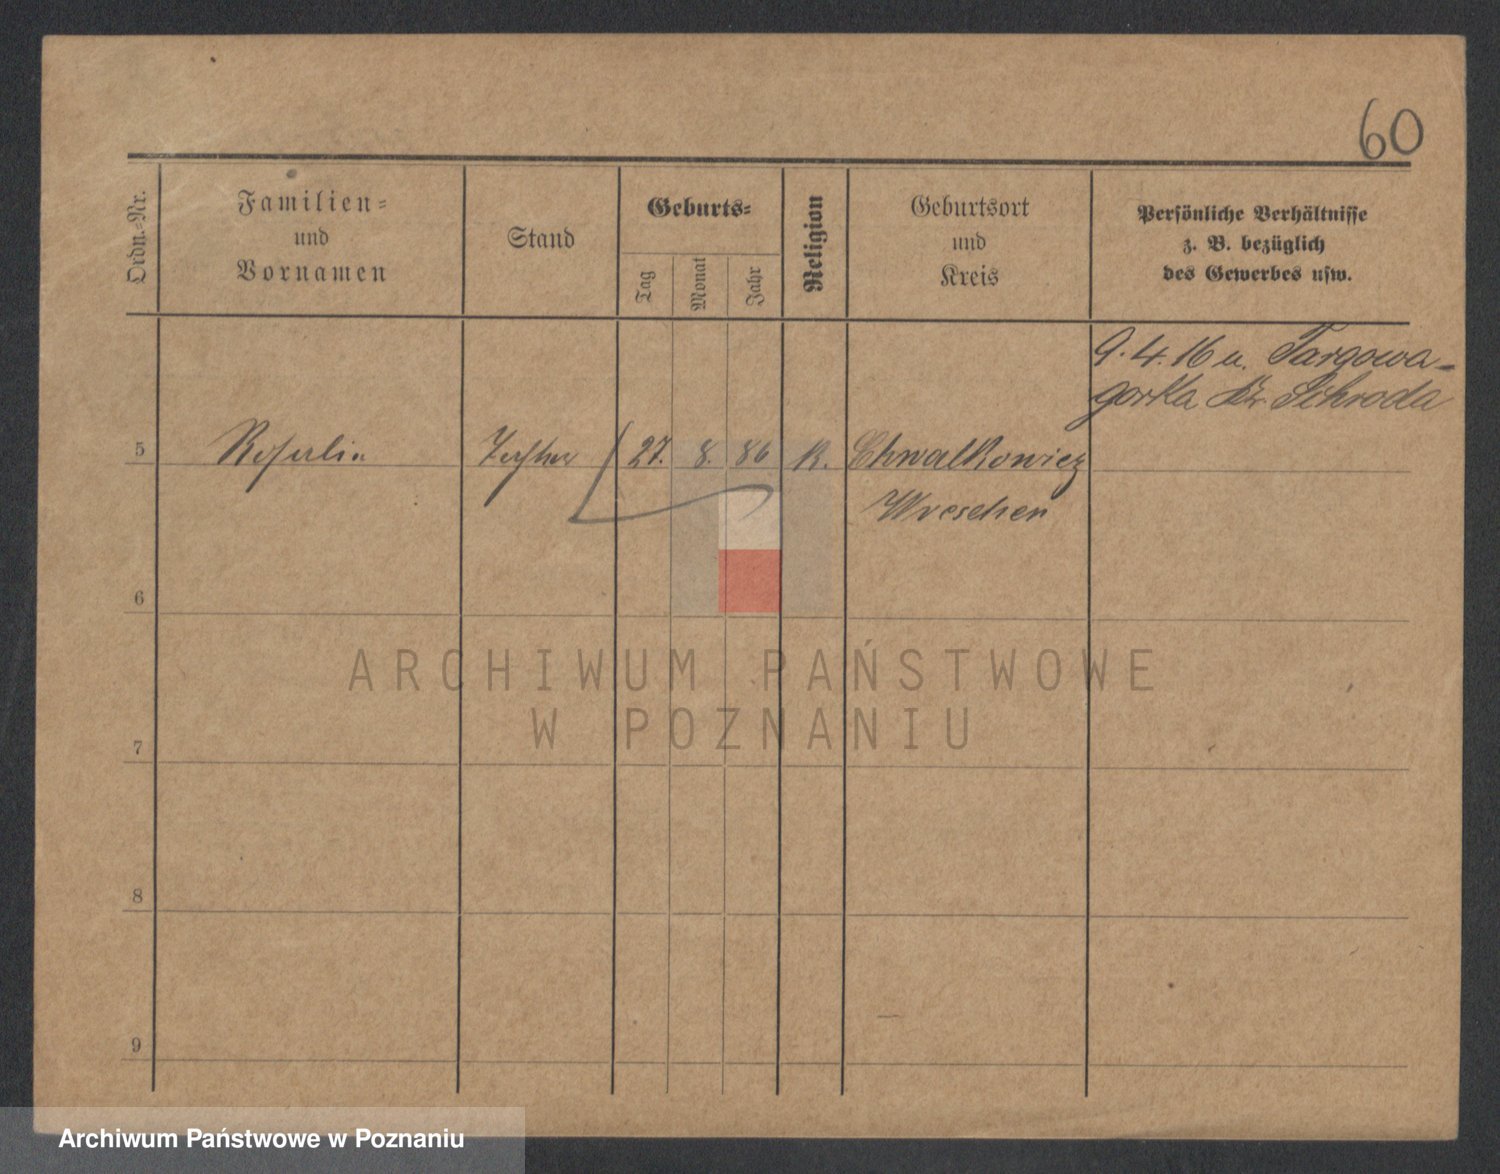 60
Ordn.-Nr.
Familien-
und
Vornamen
Stand
Geburts-
Tag
Monat
Jahr
Religion
Geburtsort
und
Kreis
Persönliche Verhältnisse
z. B. bezüglich
des Gewerbes usw.
9.4.16 n. Targowa-
gorka Kr Schroda
5 Rosalia Tochter 27. 8. 86 K. Chwalkowicz
Wreschen
6
ARCHIWUM PAŃSTWOWE
W POZNANIU
7
8
9
Archiwum Państwowe w Poznaniu